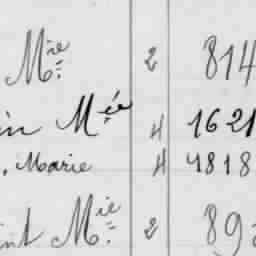 Mre 2 814
in Mée 4 1621
, Marie 4 4818
int Mie 2 89